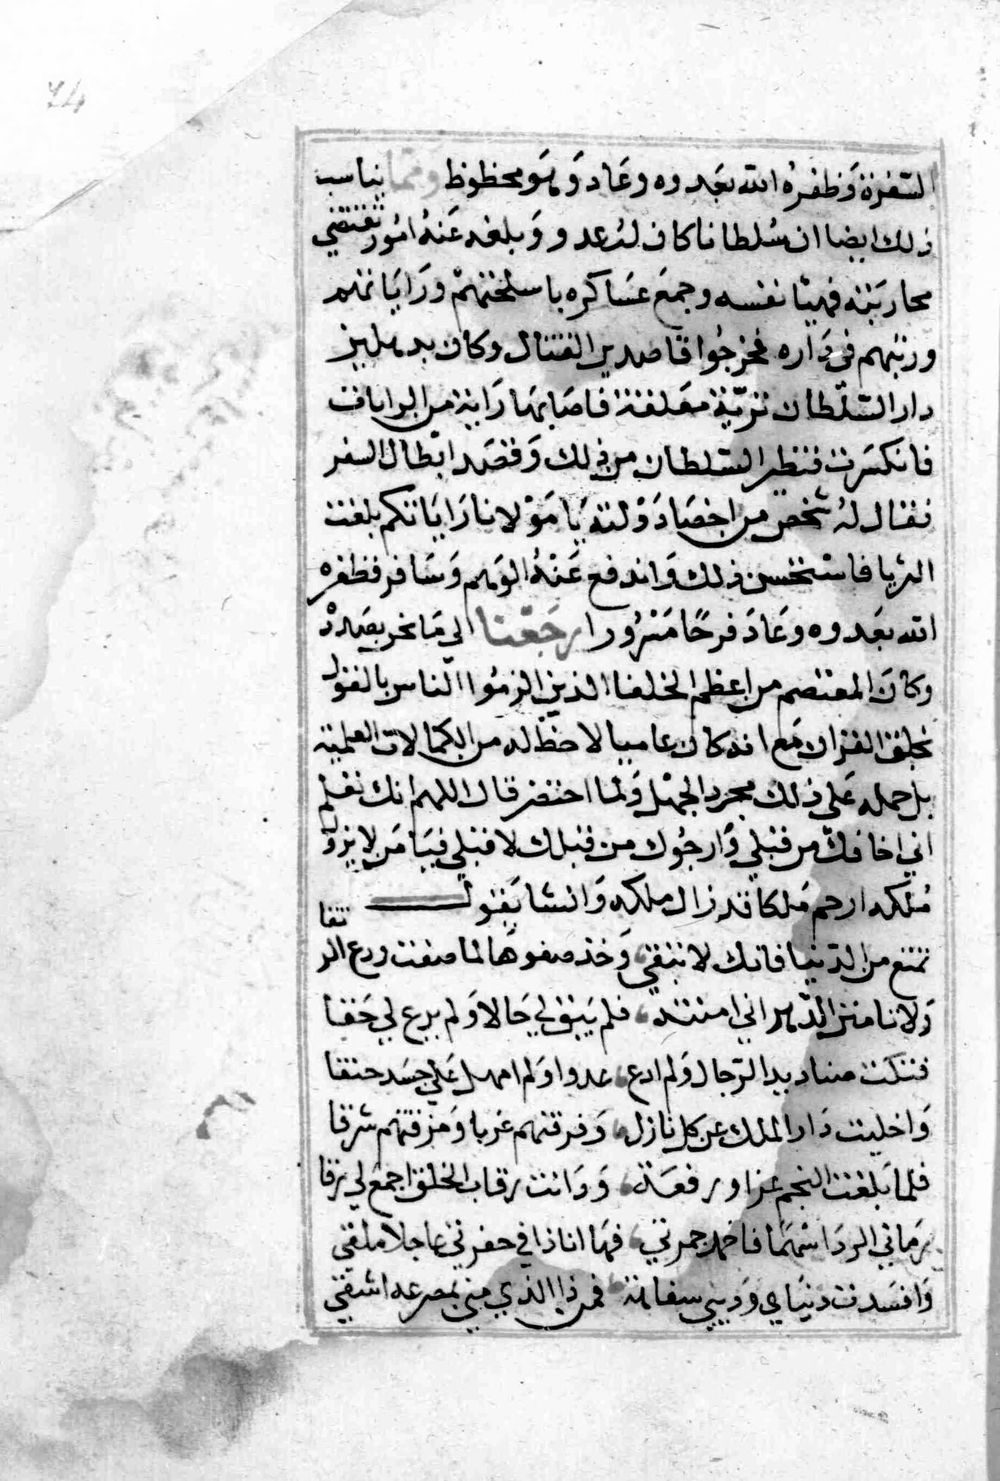 ٧٤
السفرة وظفره الله بعدوه وعاد وهو محظوظ ومما يناسب
ذلك ايضا ان سلطانا كان له عدو وبلغه عنه امور تقتضي
محاربته فهيا نفسه وجمع عساكره باسلحتهم وراياتهم
ورتبهم في داره فخرجوا قاصدين القتال وكان بدهليز
دار السلطان ثرية معلقة فاصابها راية من الرايات
فانكسرت فتطير السلطان من ذلك وقصد ابطال السفر
فقال له شخص من اخصا دولته يا مولانا راياتكم بلغت
الثريا فاستحسن ذلك واندفع عنه الوهم وسافر فظفره
الله بعدوه وعاد فرحا مسرورا رجعنا الي ما نحن بصدده
وكان المعتصم من اعظم الخلفا الذين الزموا الناس بالقول
بخلق القران مع انه كان عاميا لا حظ له من الكمالات العلمية
بل حمله علي ذلك مجرد الجهل ولما احتضر قال اللهم انك تعلم
اني اخافك من قبلي وارجوك من قبلك لا قبلي فيا من لا يزول
ملكه ارحم ملكا قد زال ملكه وانشا يقول
تمتع من الدنيا فانك لا تبقي وخذ صفوها لما صفت ودع الر
نقا
ولا نا منن الدهر اني امنته فلم يبق لي حالا ولم يرع لي حقا
قتلت صناديد الرجال ولم ادع عدوا ولم امهل علي جسد حنقا
واخليت دار الملك عن كل نازل وفرقتهم غربا ومزقتهم شرقا
فلما بلغت النجم عزا ورفعة ودانت رقاب الخلق اجمع لي رقا
رماني الردا سهما فاخمد جمرتي فها انا ذا في حفرتي عاجلا ملقي
وافسدت دنياي وديني سفاهة فمن ذا الذي مني بمصرعه اشقي